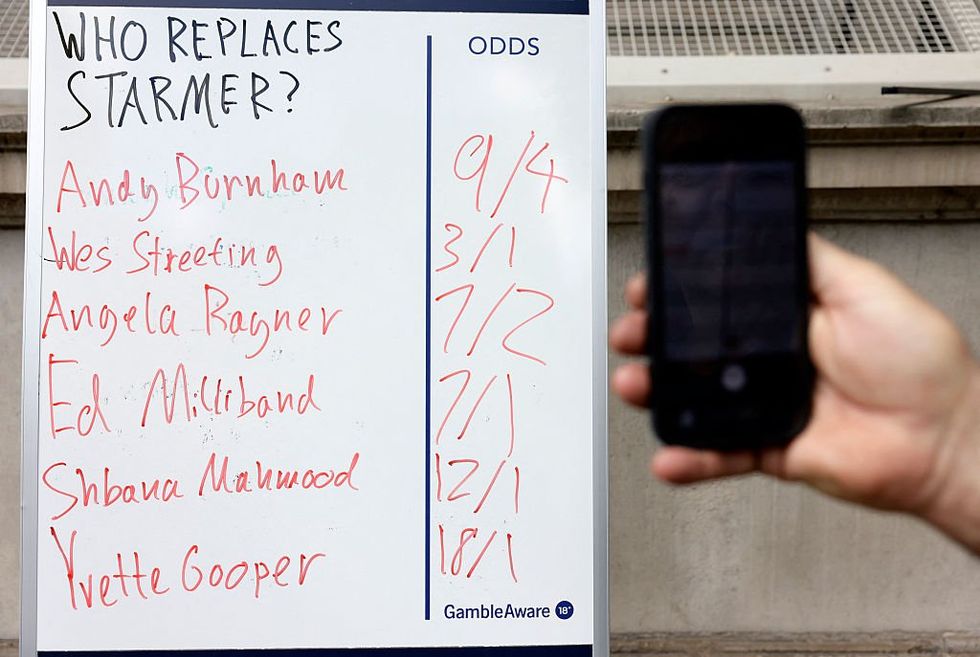 WHO REPLACES
STARMER?
ODDS
Andy Burnham 9/4
Wes Streeting 3/1
Angela Ragner 7/2
Ed Milliband 7/1
Shbana Mahmood 12/1
Yvette Cooper 18/1
GambleAware 18+